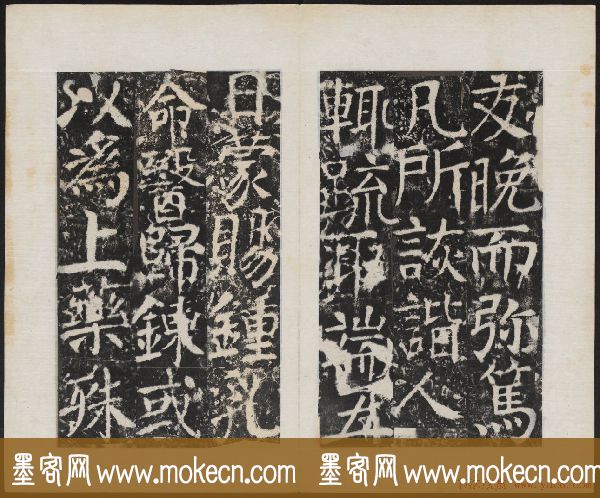 友晚而弥篤
凡所詼諧人
輒疏取端五
日蒙賜鍾乳
命醫歸鍊或
以為上藥殊
墨客网www.mokecn.com
墨客网www.mokecn.com